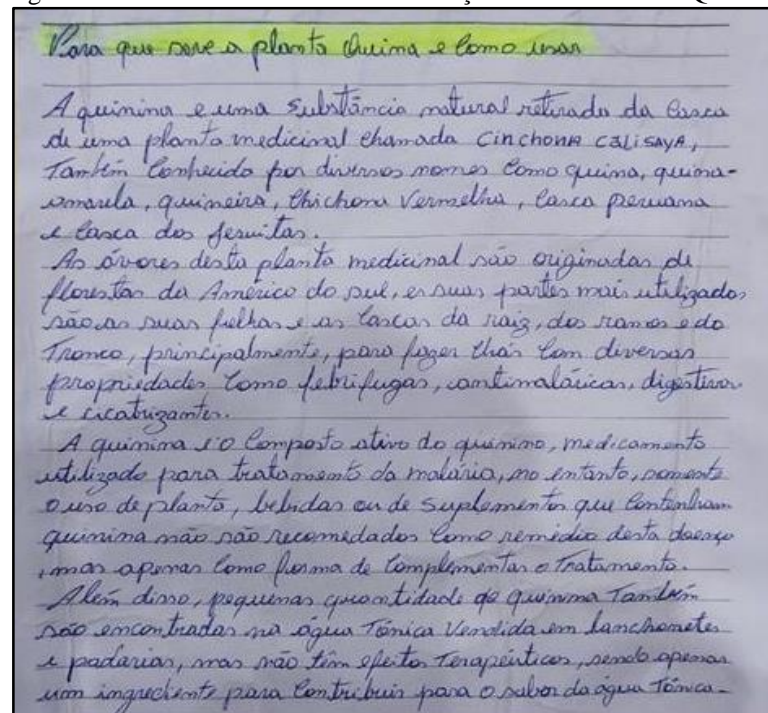 Para que serve a planta Quima e Como usar
A quinina e uma substância natural retirada da Casca
de uma planta medicinal chamada CINCHONA CALISAYA,
Também Conhecida por diversos nomes Como quina, quina-
amarela, quineira, Chichona Vermelha, Casca peruana
e Casca dos Jesuítas.
As ávores desta planta medicinal são originadas de
florestas da América do sul, e suas partes mais utilizadas
são as suas folhas e as Cascas da raiz, dos ramos e do
Tronco, principalmente, para fazer Chás Com diversas
propriedades Como febrífugas, antimaláricas, digestivas
e cicatrizantes.
A quinina é o Composto ativo do quinino, medicamento
utilizado para tratamento da malária, no entanto, somente
o uso de planta, bebidas ou de suplementos que Contenham
quinina não são recomedados Como remédio desta doença
, mas apenas Como forma de Complementar o Tratamento.
Além disso, pequenas quantidade de quinina Também
são encontradas na água Tônica Vendida em lanchonetes
e padarias, mas não têm efeitos Terapêuticos, sendo apenas
um ingrediente para Contribuir para o sabor da água Tônica.